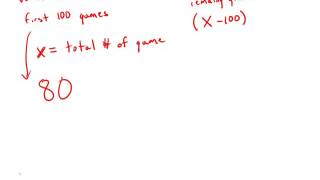 first 100 games
(x-100)
x = total # of game
80